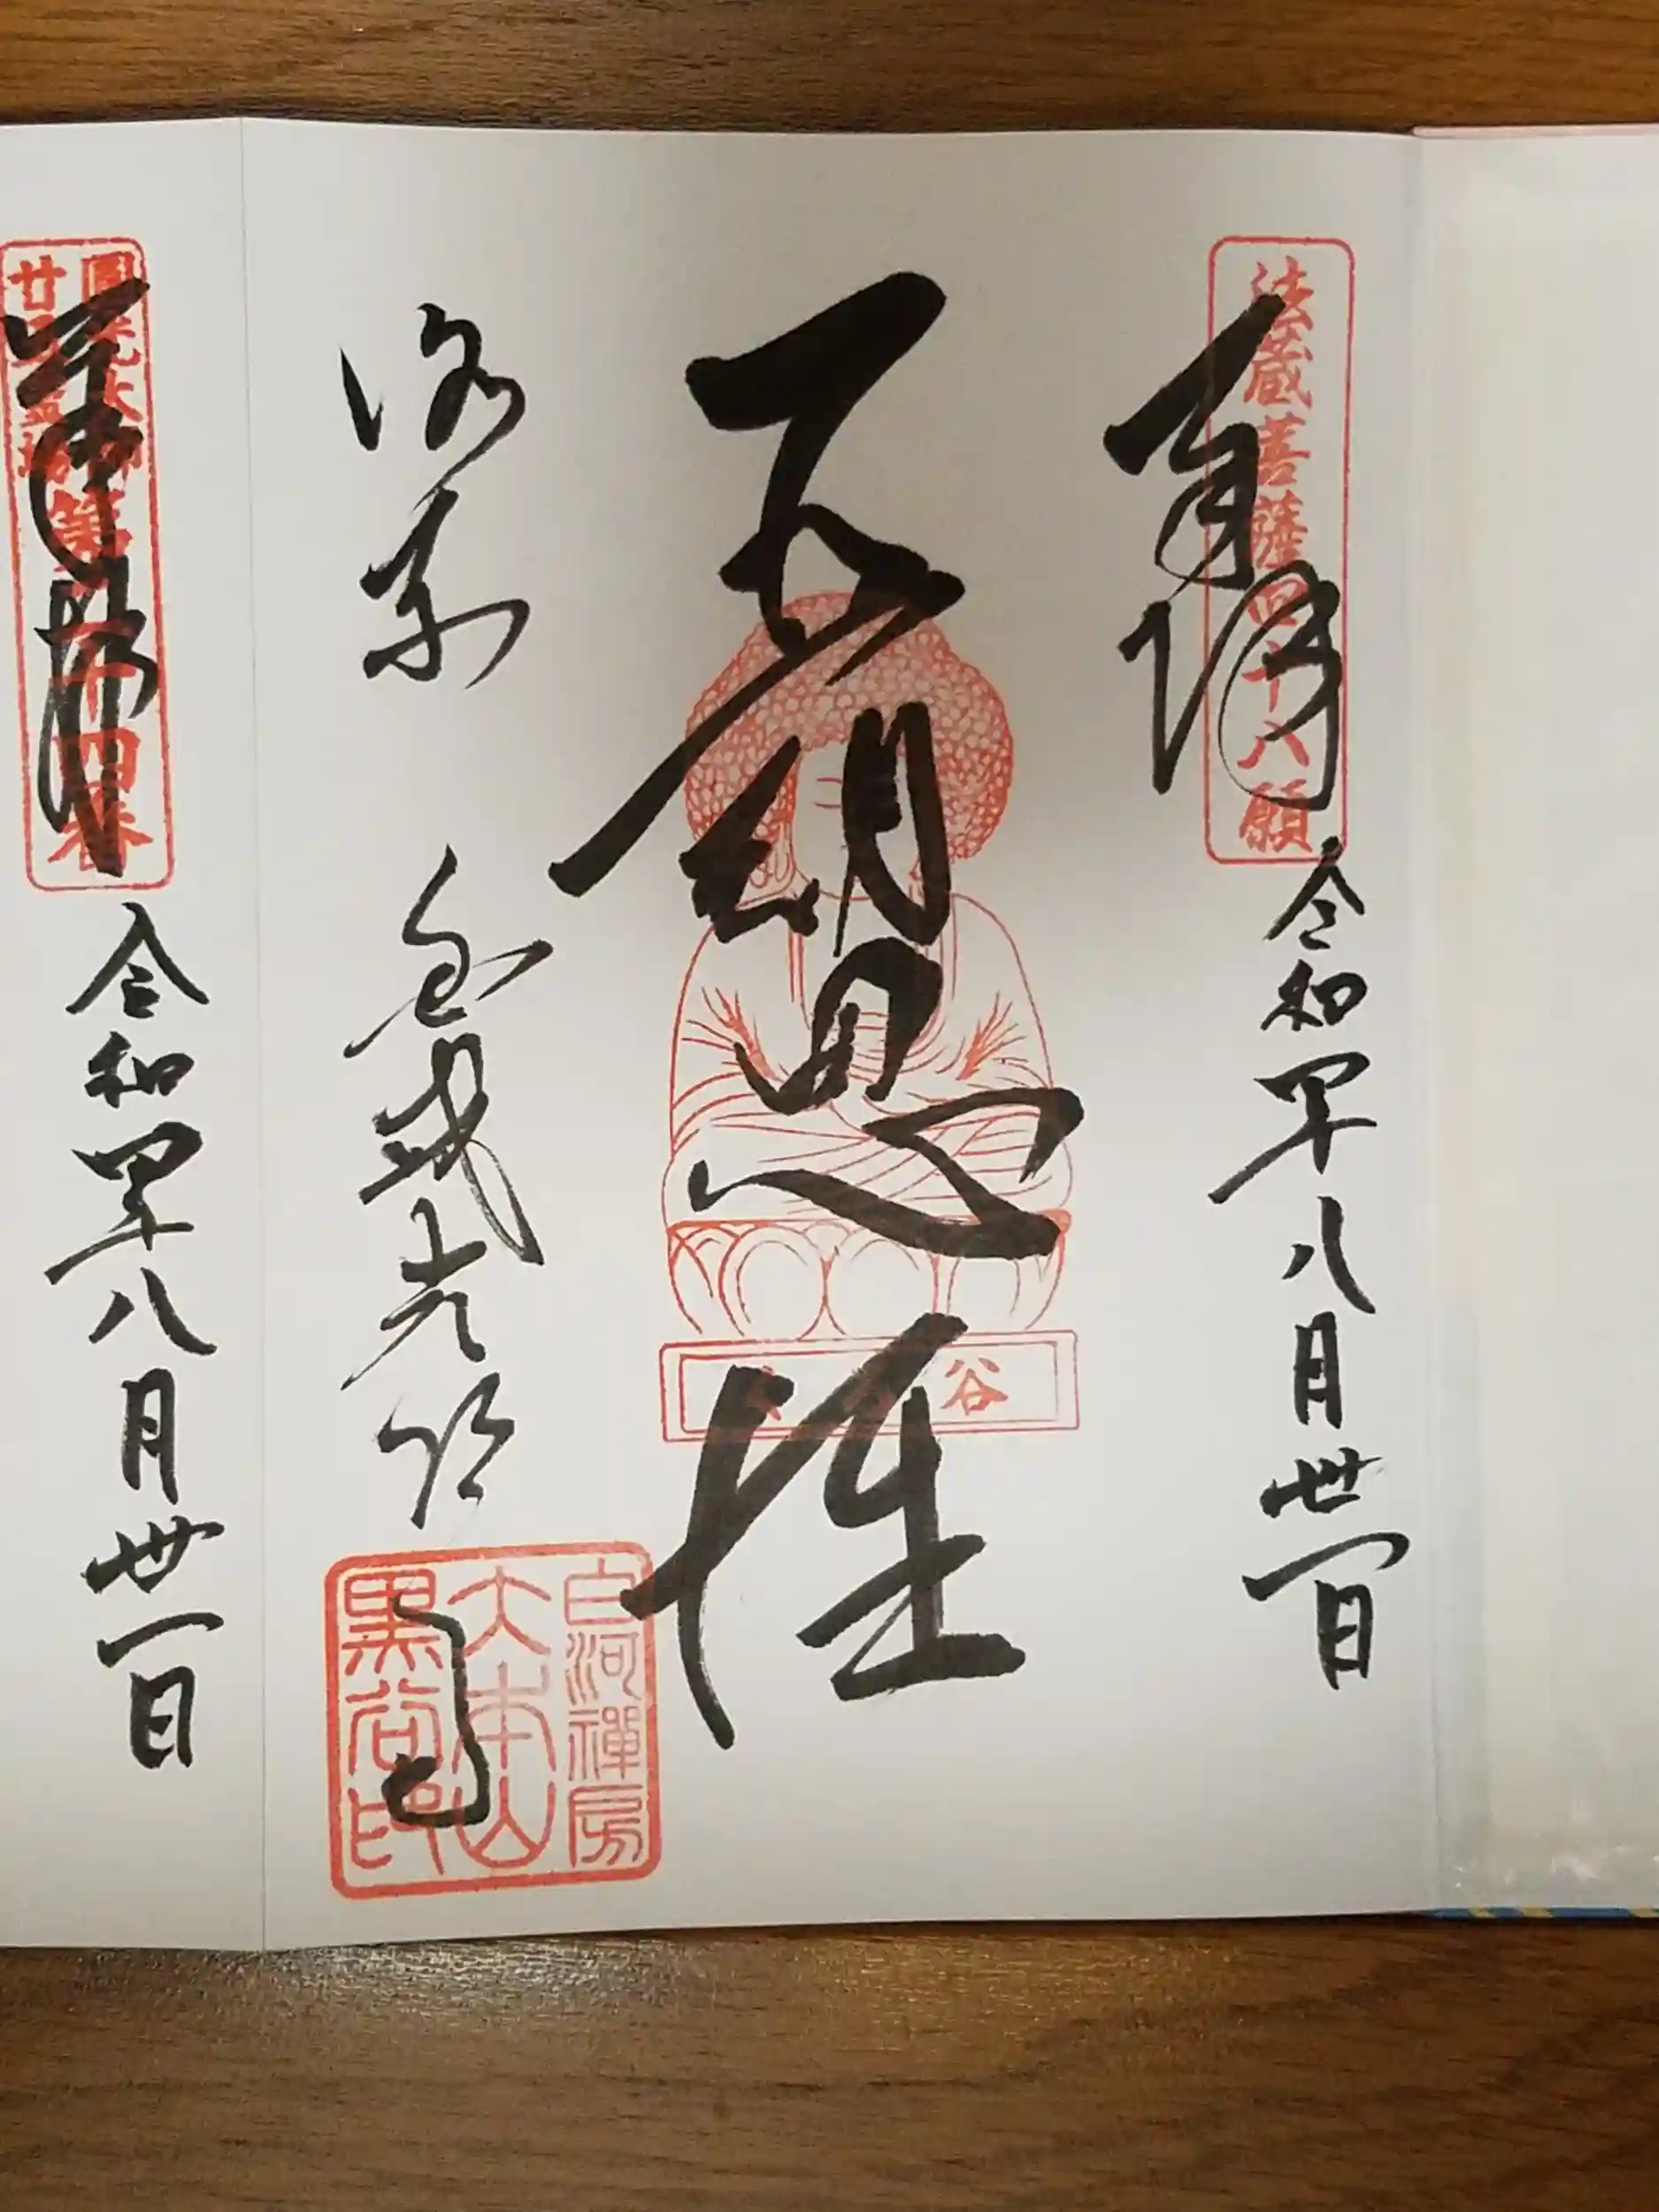 法蔵菩薩四十八願
奉拝
令和四年八月丗一日
五劫思惟
谷
洛东
金戒光明寺
白河禪房
大本山
黒谷印
圓光大師
廿五霊場
第二十四番
奉拝
令和四年八月丗一日